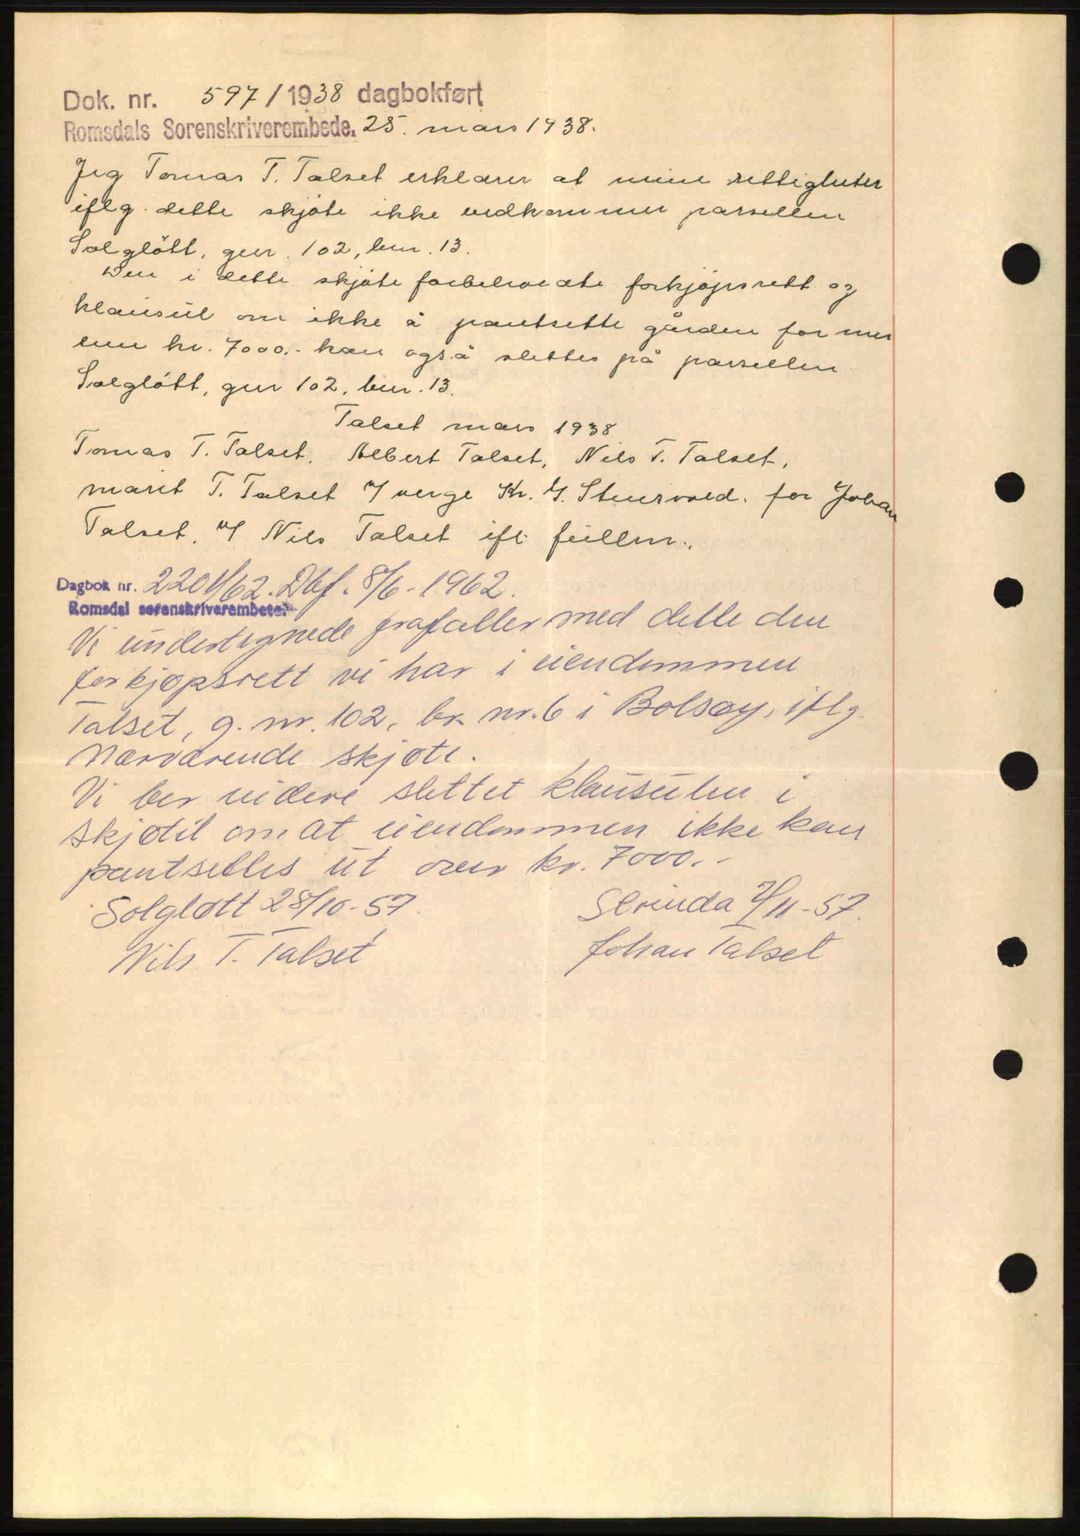 Dok. nr. 597/1938 dagbokført
Romsdals Sorenskriverembede. 25. mars 1938.
Jeg Tomas T. Talset erklærer at mine rettigheter
iflg. dette skjöte ikke vedkommer parsellen
Solglött, gnr. 102, bnr. 13.
Den i dette skjöte forbeholdte forkjöpsrett og
klausul om ikke å pantsette gården for mer
enn kr. 7000.- kan også slettes på parsellen
Solglött, gnr 102, bnr. 13.
Talset mars 1938
Tomas T. Talset. Albert Talset, Nils T. Talset,
Marit T. Talset v/ verge Kr. for Johan
Talset. v/ Nils Talset ifl. fullm.
Dagbok nr. 2201/62. Dbf. 8/6-1962.
Romsdal sorenskriverembete
Vi undertegnede frafaller med dette den
forkjøpsrett vi har i eiendommen
Talset, g. nr. 102, br. nr. 6 i Bolsøy, iflg.
nærværende skjøte.
Vi ber videre slettet klausulen i
skjøtet om at eiendommen ikke kan
pantsettes ut over kr. 7000.-
Solgløtt 28/10-57. Strinda 2/11-57.
Nils T. Talset Johan Talset